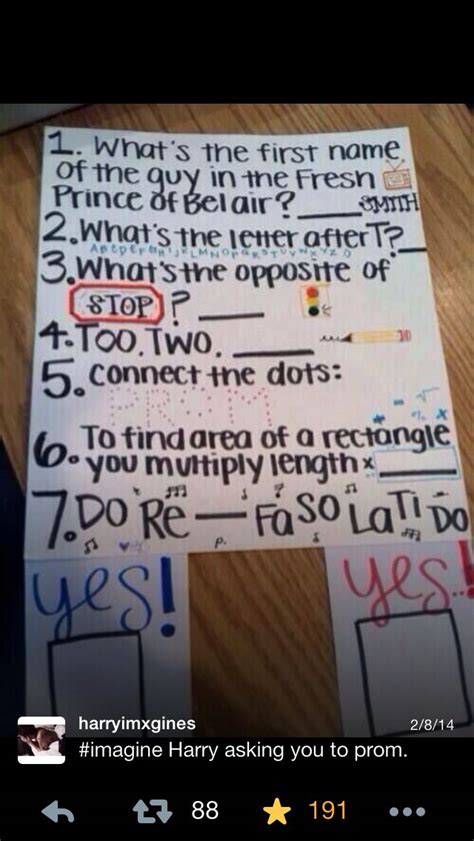 1. What's the first name
of the guy in the Fresh
Prince of Bel air? ____ SMITH
2. What's the letter after T? __
ABCDEFGHIJKLMNOPQRSTUVWXYZ
3. What's the opposite of
STOP ? ___
4. Too, Two, ____
5. Connect the dots:
PROM
6. To find area of a rectangle
you multiply length x ____
7. DO Re — Fa So La Ti Do
yes! yes!
harryimxgines 2/8/14
#imagine Harry asking you to prom.
88 191